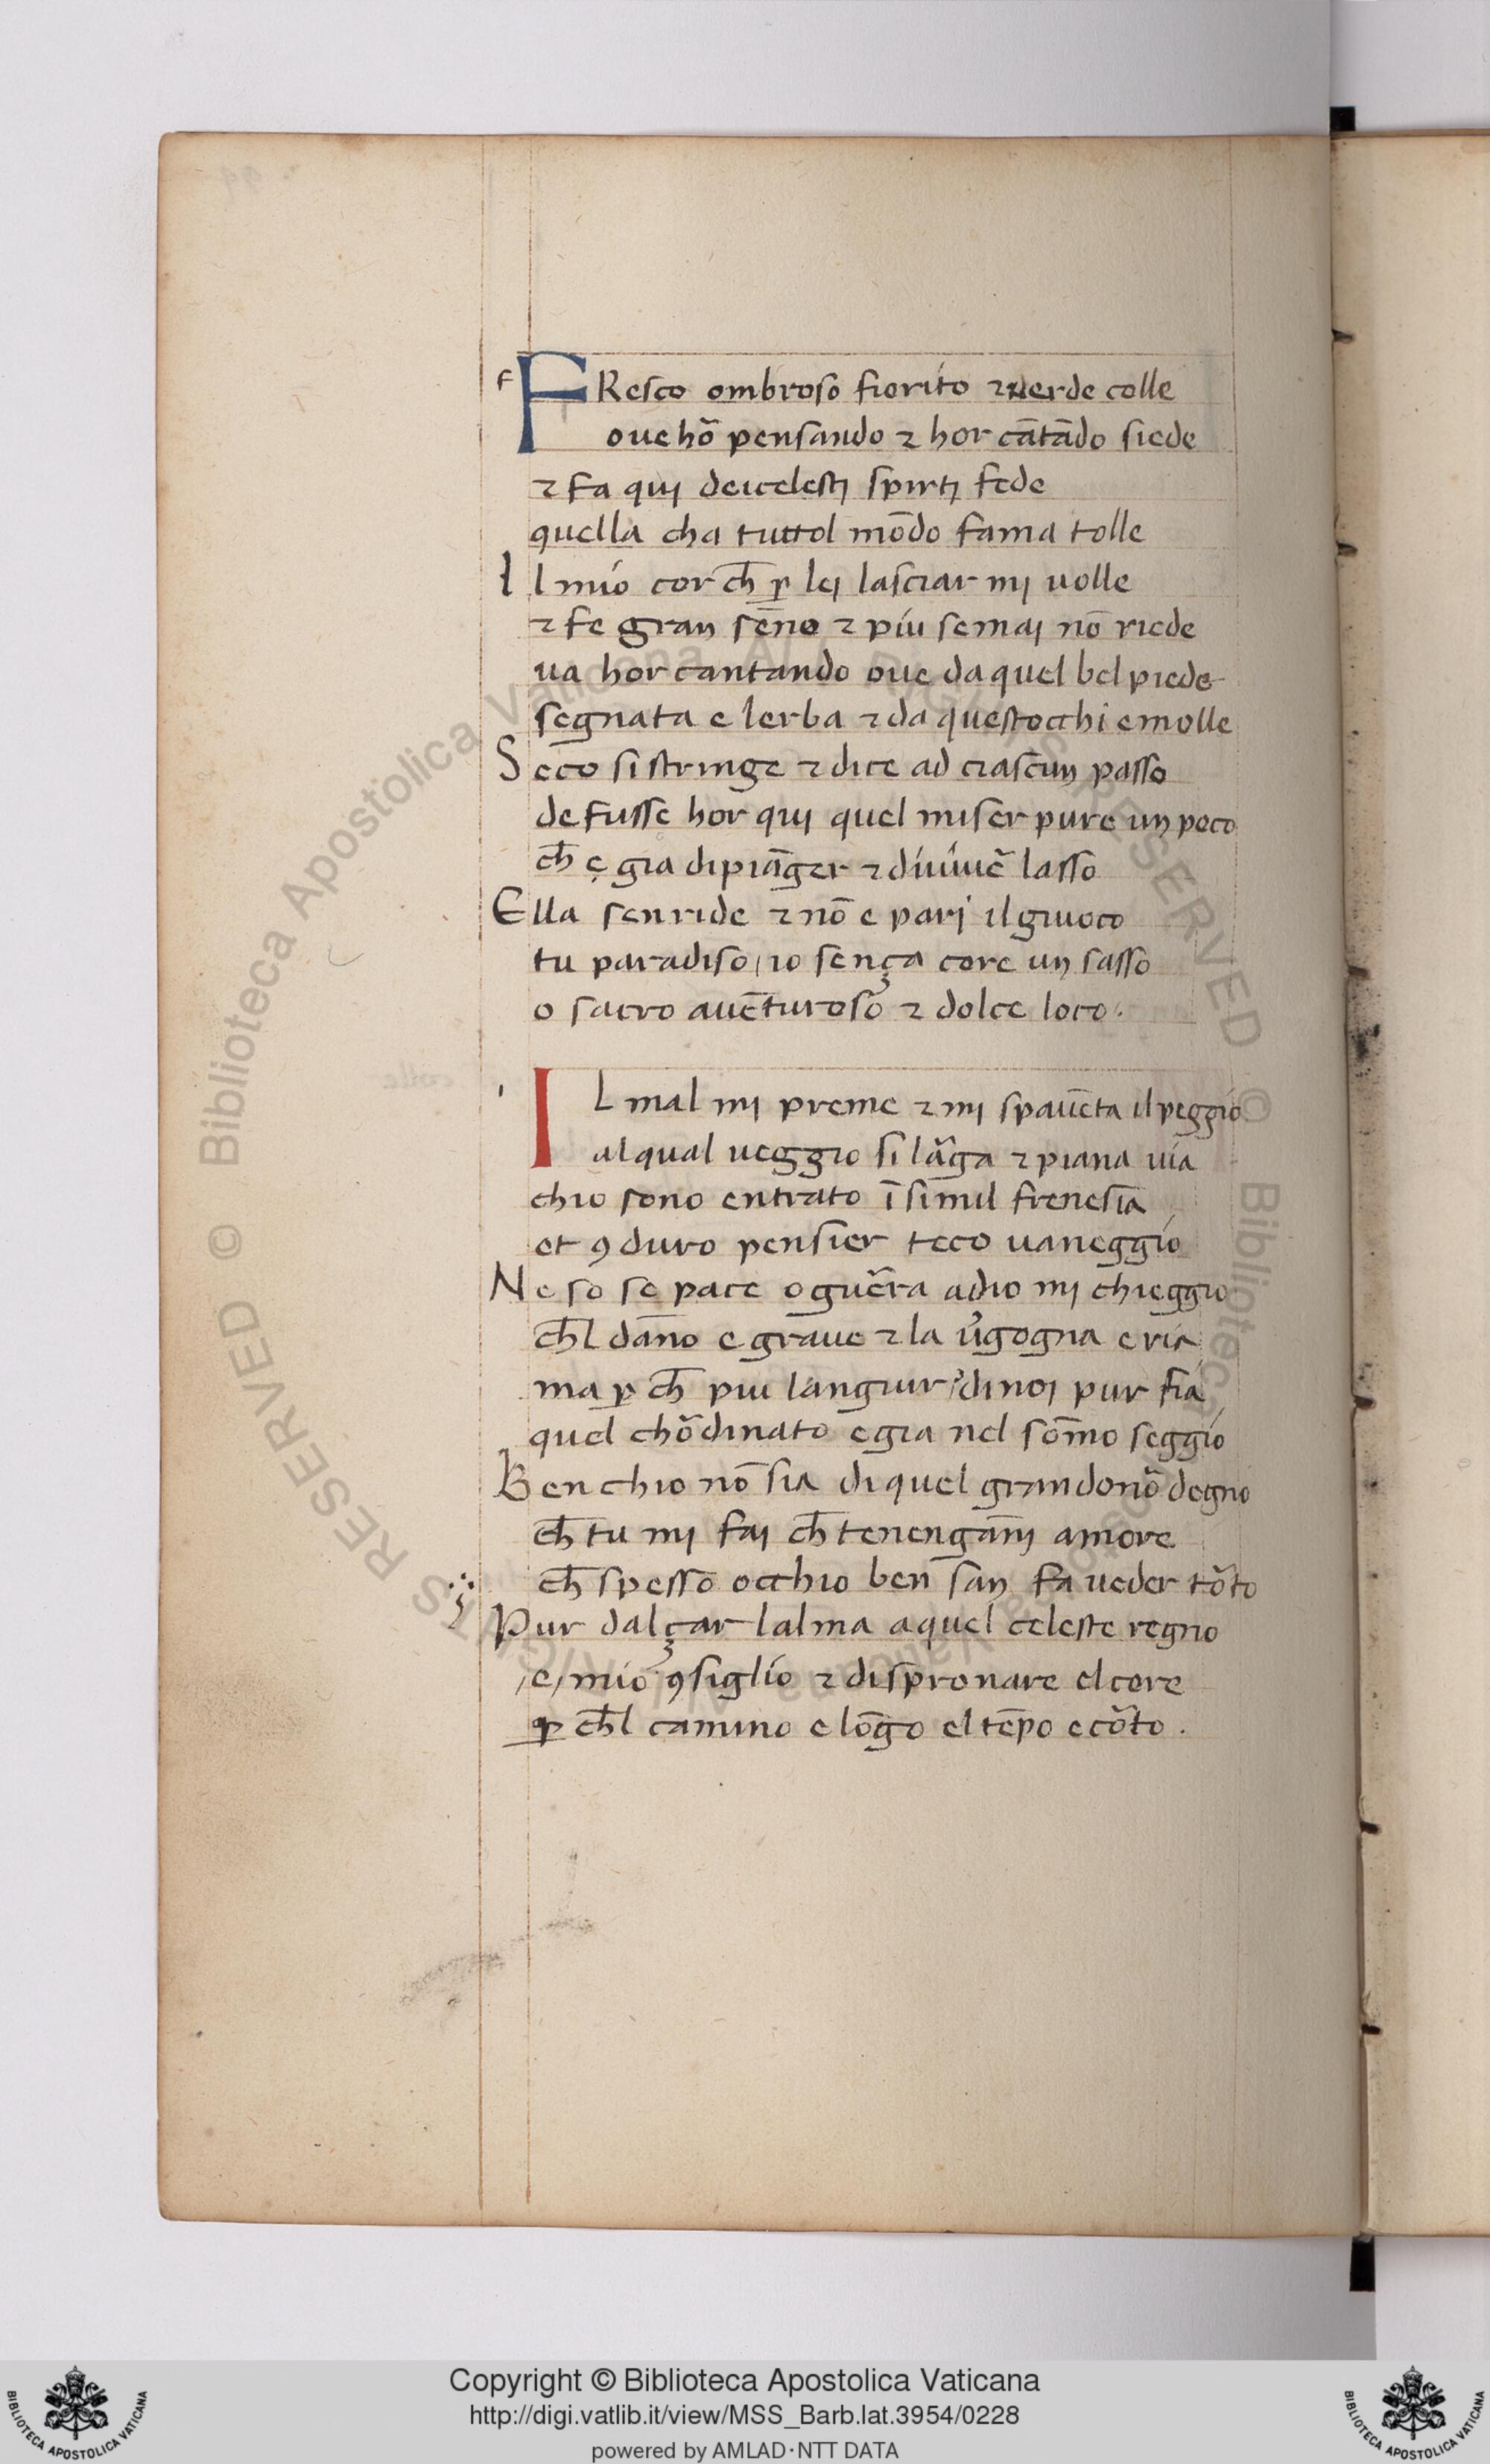 f FResco ombroso fiorito ⁊ uerde colle
oue hõ pensando ⁊ hor cãtãdo siede
⁊ fa quj deicelestj spirtj fede
quella cha tuttol mõdo fama tolle
Il mio cor ch̄ ꝑ lej lasciar mj uolle
⁊ fe gran sẽno ⁊ piu semaj nõ riede
ua hor cantando oue daquel bel piede
segnata e lerba ⁊ da questocchi emolle
Seco si stringe ⁊ dice ad ciascun passo
de fusse hor quj quel miser pure un poco
ch̄ ę gia dipiãger ⁊ diuiuẽ lasso
Ella sen ride ⁊ nõ e parj il giuoco
tu paradiso / io sença core un sasso
o sacro auẽturoso ⁊ dolce loco.
IL mal mj preme ⁊ mj spauẽta il peggio
alqual ueggio si lãga ⁊ piana uia
chio sono entrato ĩ simil frenesia
et ꝯ duro pensier teco uaneggio
Ne so se pace o guẽra adio mj chieggio
ch̄l dãno e graue ⁊ la ũgogna e ria
ma ꝑ ch̄ piu languir? dinoj pur fia
quel chõdinato egia nel sõmo seggio
Ben chio nõ sia di quel grandonõ degno
ch̄ tu mj faj ch̄ tenengãnj amore
ch̄ spesso occhio ben san fa ueder tõto
Pur dalçar lalma aquel celeste regno
/e/ mio ꝯsiglio ⁊ dispronare elcore
ꝑ ch̄l camino e lõgo el tẽpo e cõto .
© Biblioteca Apostolica Vaticana ALL RIGHTS RESERVED
Copyright © Biblioteca Apostolica Vaticana
http://digi.vatlib.it/view/MSS_Barb.lat.3954/0228
powered by AMLAD·NTT DATA
BIBLIOTECA APOSTOLICA VATICANA
BIBLIOTECA APOSTOLICA VATICANA